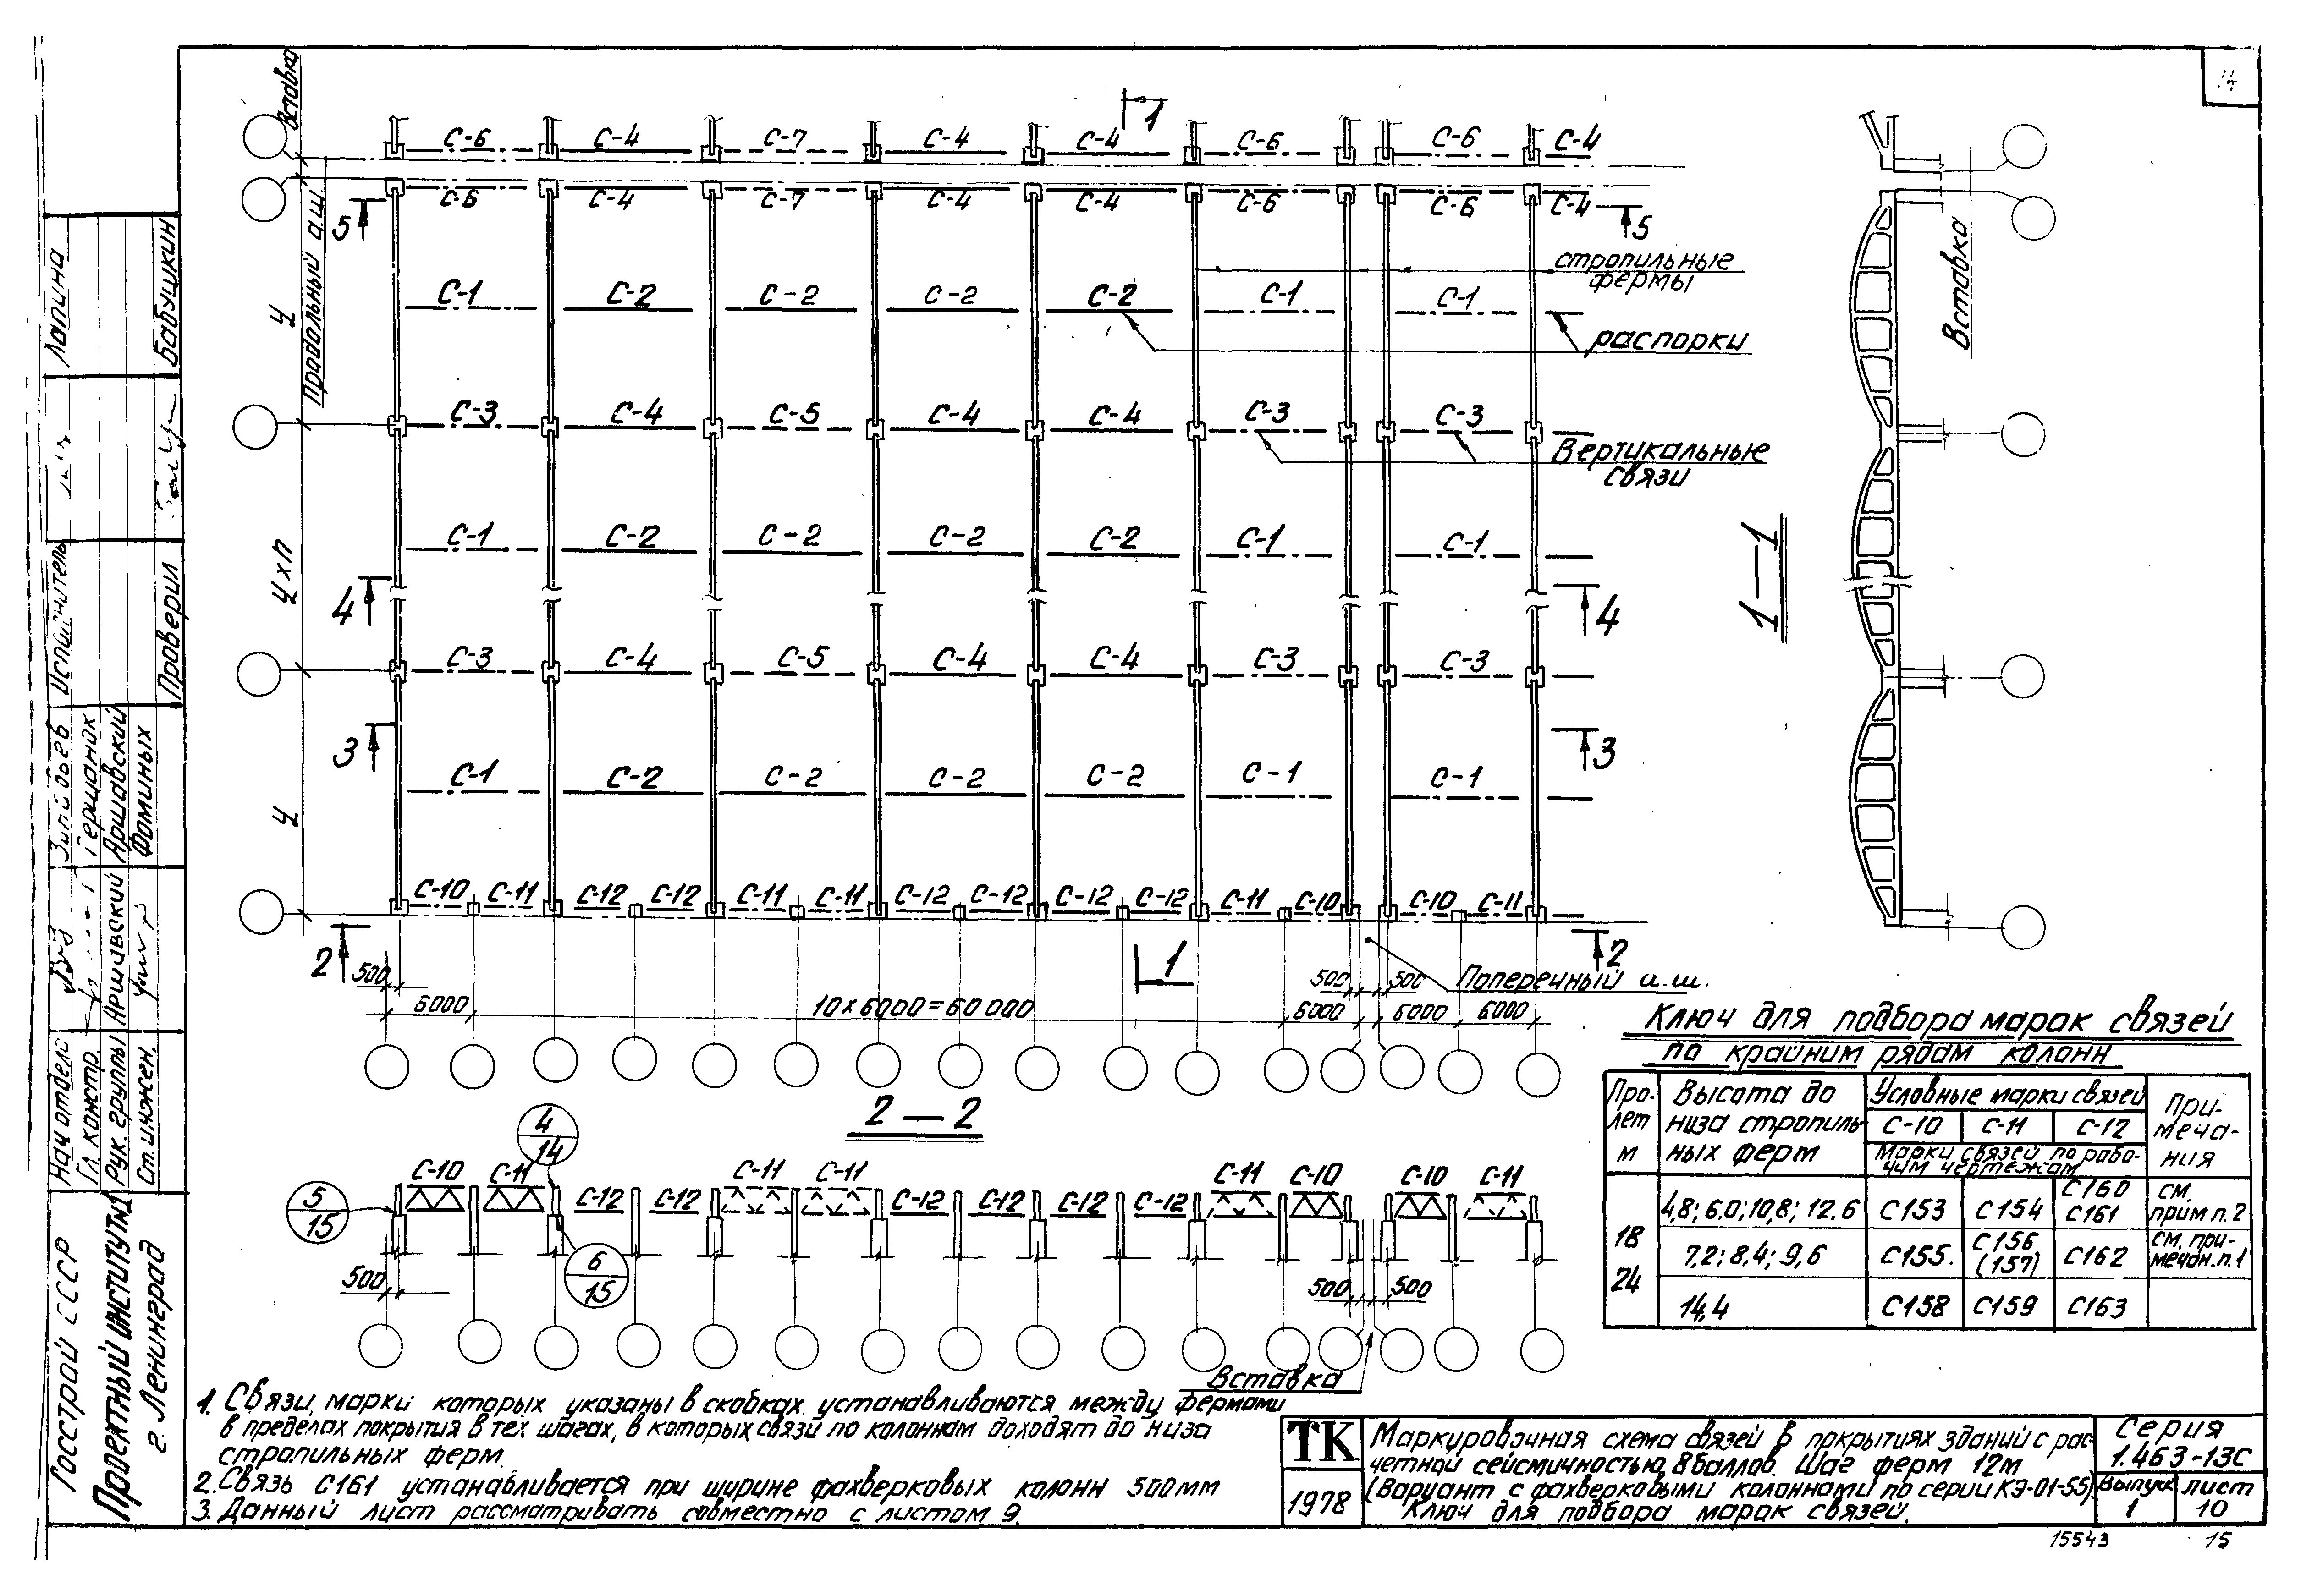 14
Вставка
1
С-6 С-4 С-7 С-4 С-4 С-6 С-6 С-4
С-6 С-4 С-7 С-4 С-4 С-6 С-6 С-4
5 5
Продольный а.ш.
стропильные
фермы
Ц С-1 С-2 С-2 С-2 С-2 С-1 С-1
распорки
С-3 С-4 С-5 С-4 С-4 С-3 С-3
Вертикальные
связи
Ц×п С-1 С-2 С-2 С-2 С-2 С-1 С-1
4 4
С-3 С-4 С-5 С-4 С-4 С-3 С-3
3 3
Ц С-1 С-2 С-2 С-2 С-2 С-1 С-1
С-10 С-11 С-12 С-12 С-11 С-11 С-12 С-12 С-12 С-12 С-11 С-10 С-10 С-11
2 1 2
500 500 500 Поперечный а.ш.
6000 10×6000=60000 6000 6000 6000
1—1
Вставка
2—2
4
14
5
15
6
15
С-10 С-11 С-12 С-12 С-11 С-11 С-12 С-12 С-12 С-12 С-11 С-10 С-10 С-11
500 500 500
Вставка
Ключ для подбора марак связей
по крайним рядам колонн
Про-
лет
м
Высота до
низа стропиль-
ных ферм
Условные марки связей
С-10 С-11 С-12
Марки связей по рабо-
чим чертежам
При-
меча-
ния
18
24
4,8; 6.0; 10,8; 12.6 С153 С154 С160
С161
см.
прим п. 2
7,2; 8,4; 9,6 С155. С156
(157)
С162
см. при-
мечан. п. 1
14,4 С158 С159 С163
1. Связи, марки которых указаны в скобках. устанавливаются между фермами
в пределах покрытия в тех шагах, в которых связи по колоннам доходят до низа
стропильных ферм.
2. Связь С161 устанавливается при ширине фахверковых колонн 500мм
3. Данный лист рассматривать совместно с листом 9.
ТК
1978
Маркировочная схема связей в покрытиях зданий с рас-
четной сейсмичностью 8 баллов. Шаг ферм 12м
(Вариант с фахверковыми колоннами по серии КЭ-01-55).
Ключ для подбора марак связей.
Серия
1.463-13С
Выпуск
1
лист
10
15543 15
Госстрой СССР
Проектный институт №1
г. Ленинград
Нач отдела
Гл. констр.
Рук. группы
Ст. инжен.
Аршавский
Фоминых
Исполнитель
Проверил
Лапина
Бабушкин